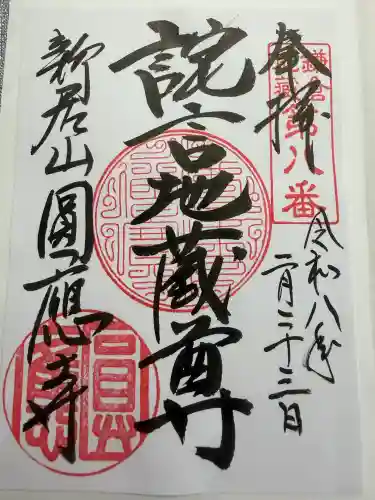 奉拝
鎌倉
地蔵第八番
令和八年
二月二十三日
詫言地蔵尊
新居山圓應寺